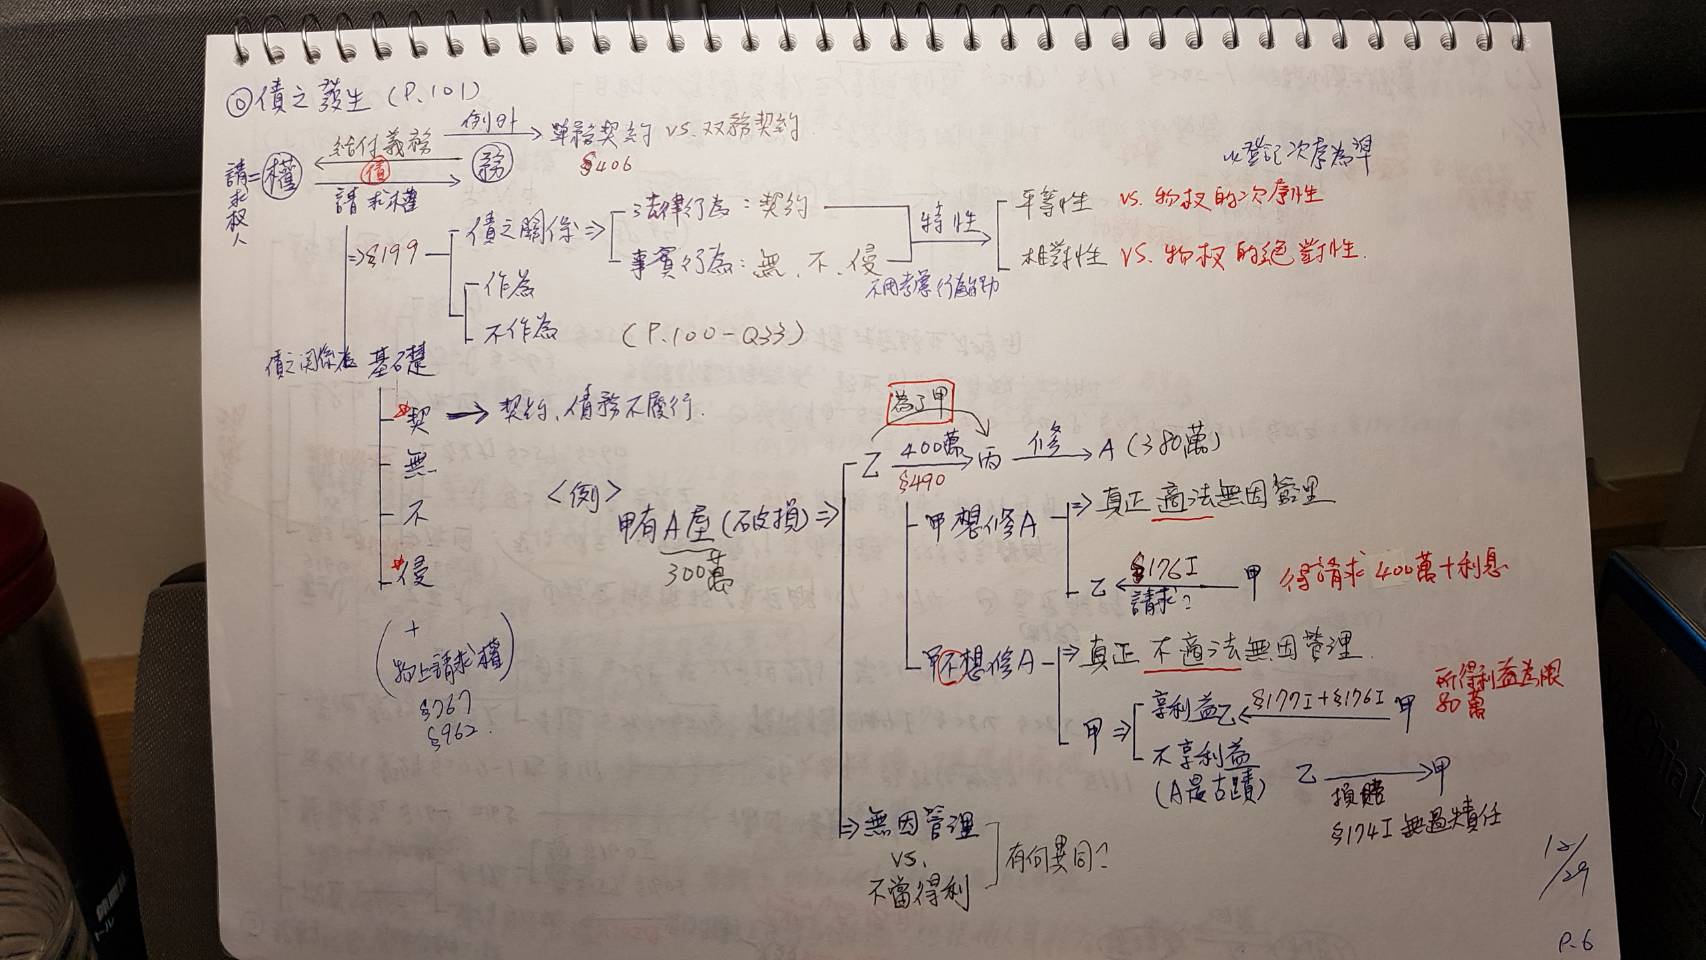 ◎債之發生 (P.101)
例外
單務契約 vs. 双務契約
§406
給付義務
請求权人
=權
債
務
請求權
以登記次序為準
⇒§199
債之關係⇒
法律行為：契約
事實行為：無、不、侵
不用考慮行為能力
特性
平等性 vs. 物权的次序性
相對性 vs. 物权的絕對性.
作為
不作為
(P.100-Q33)
債之関係為 基礎
契 → 契約、債務不履行.
無
不
侵
(+
物上請求權)
§767
§962.
<例>
甲有A屋(破損)⇒
300萬
為了甲
乙 400萬 丙 修 A (380萬)
§490
甲想修A
⇒真正 適法無因管理
乙 §176I 甲 得請求 400萬+利息
請求?
甲不想修A
⇒真正 不適法無因管理.
甲⇒
享利益乙 §177I+§176I 甲 所得利益為限
80萬
不享利益
(A是古蹟)
乙 → 甲
損賠
§174I 無過失責任
⇒無因管理
vs.
不當得利
有何異同?
12/29
P.6